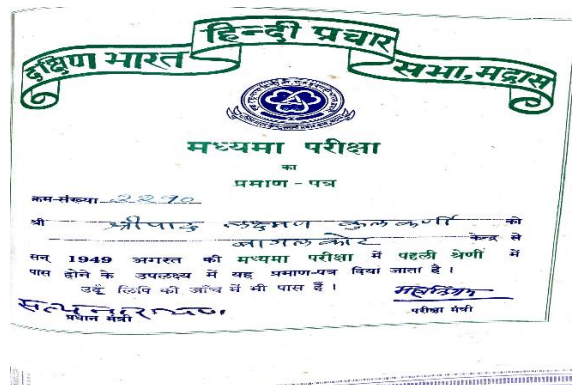 दक्षिण भारत हिन्दी प्रचार सभा, मद्रास
मध्यमा परीक्षा
का
प्रमाण - पत्र
क्रम-संख्या 2290
श्री श्रीपाद लक्ष्मण कुलकर्णी को
बागलकोट केन्द्र से
सन् 1949 अगस्त की मध्यमा परीक्षा में पहली श्रेणी में
पास होने के उपलक्ष्य में यह प्रमाण-पत्र दिया जाता है ।
उर्दू लिपि की जाँच में भी पास हैं ।
सत्यनारायण
प्रधान मंत्री
परीक्षा मंत्री